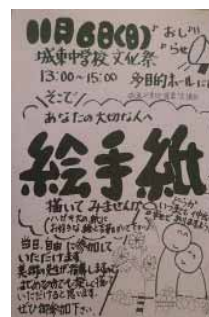 11月6日(日) おしらせ
城東中学校 文化祭
13:00~15:00 多目的ホールに
そこで
あなたの大切な人へ
絵手紙
描いてみませんか
ハガキ大の紙に
お好きな絵と言葉を
当日、自由に参加して
いただけます。
美術の先生が指導しますので
はじめての方でも楽しく描いて
いただけると思います。
ぜひ御参加下さい。